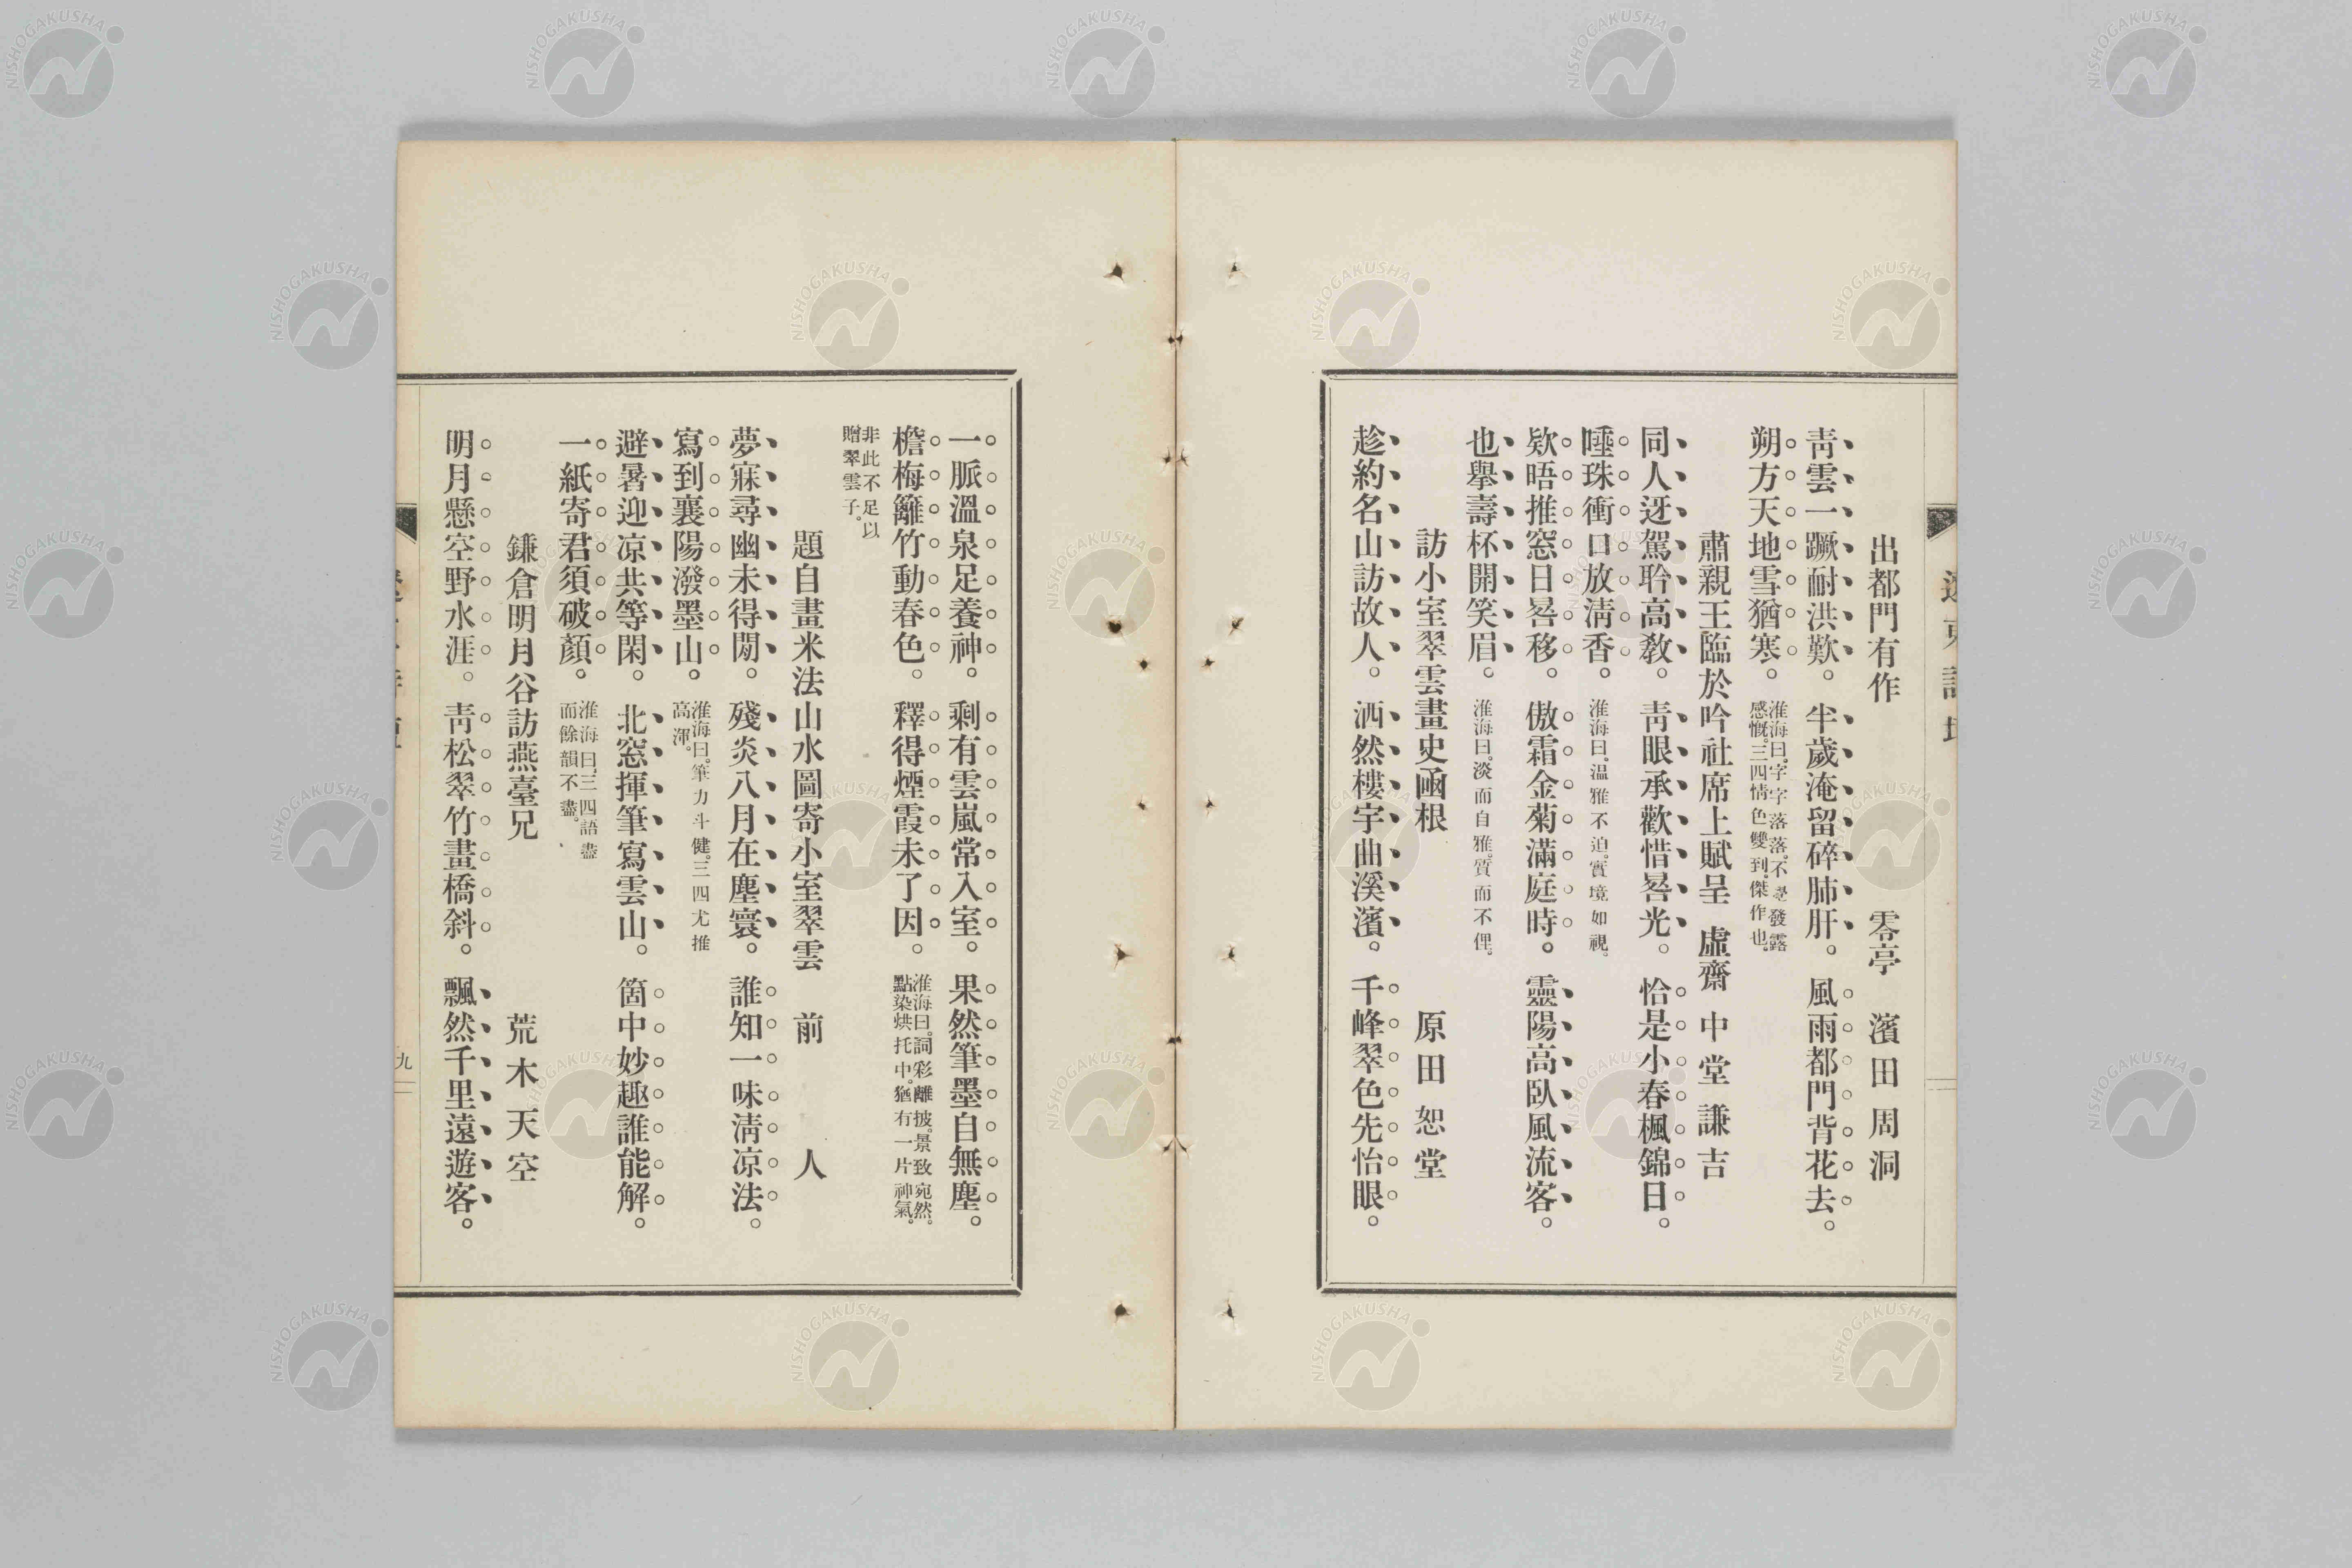 出都門有作 零亭 濱田周洞
靑雲一蹶耐洪歎。半歲淹留碎肺肝。風雨都門背花去。
朔方天地雪猶寒。淮海曰。字字落落。不覺發露
感慨。三四情色雙到。傑作也。
肅親王臨於吟社席上賦呈 虛齋 中堂謙吉
同人迓駕聆高敎。靑眼承歡惜晷光。恰是小春楓錦日。
唾珠衝口放淸香。淮海曰。温雅不迫。實境如視。
欵晤推窓日晷移。傲霜金菊滿庭時。靈陽高臥風流客。
也擧壽杯開笑眉。淮海曰。淡而自雅。質而不俚。
訪小室翠雲畫史凾根 原田恕堂
趁約名山訪故人。洒然樓宇曲溪濱。千峰翠色先怡眼。
一脈溫泉足養神。剩有雲嵐常入室。果然筆墨自無塵。
檐梅籬竹動春色。釋得煙霞未了因。淮海曰。詞彩離披。景致宛然。
點染烘托中。猶有一片神氣。
非此不足以
贈翠雲子。
題自畫米法山水圖寄小室翠雲 前人
夢寐尋幽未得閒。殘炎八月在塵寰。誰知一味淸凉法。
寫到襄陽潑墨山。淮海曰。筆力斗健。三四尤推
高渾。
避暑迎凉共等閑。北窓揮筆寫雲山。箇中妙趣誰能解。
一紙寄君須破顏。淮海曰。三四語盡
而餘韻不盡。
鎌倉明月谷訪燕臺兄 荒木天空
明月懸空野水涯。靑松翠竹畫橋斜。飄然千里遠遊客。
九
NISHOGAKUSHA